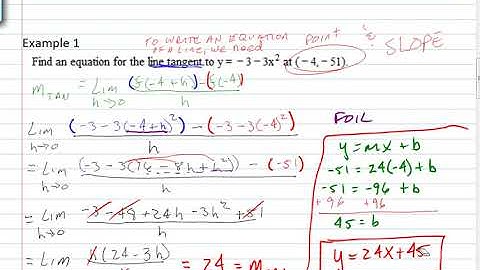 Example 1
TO WRITE AN EQUATION OF A LINE, WE NEED POINT & SLOPE
Find an equation for the line tangent to y = −3 − 3x² at (−4, −51).
m TAN = Lim h→0 (f(-4+h) - f(-4)) / h
Lim h→0 ((-3-3(-4+h)²) - (-3-3(-4)²)) / h
= Lim h→0 ((-3-3(16-8h+h²)) - (-51)) / h
= Lim h→0 (-3-48+24h-3h²+51) / h
= Lim h(24-3h) = 24 = m
FOIL
y = mx + b
-51 = 24(-4) + b
-51 = -96 + b
+96 +96
45 = b
y = 24x + 45